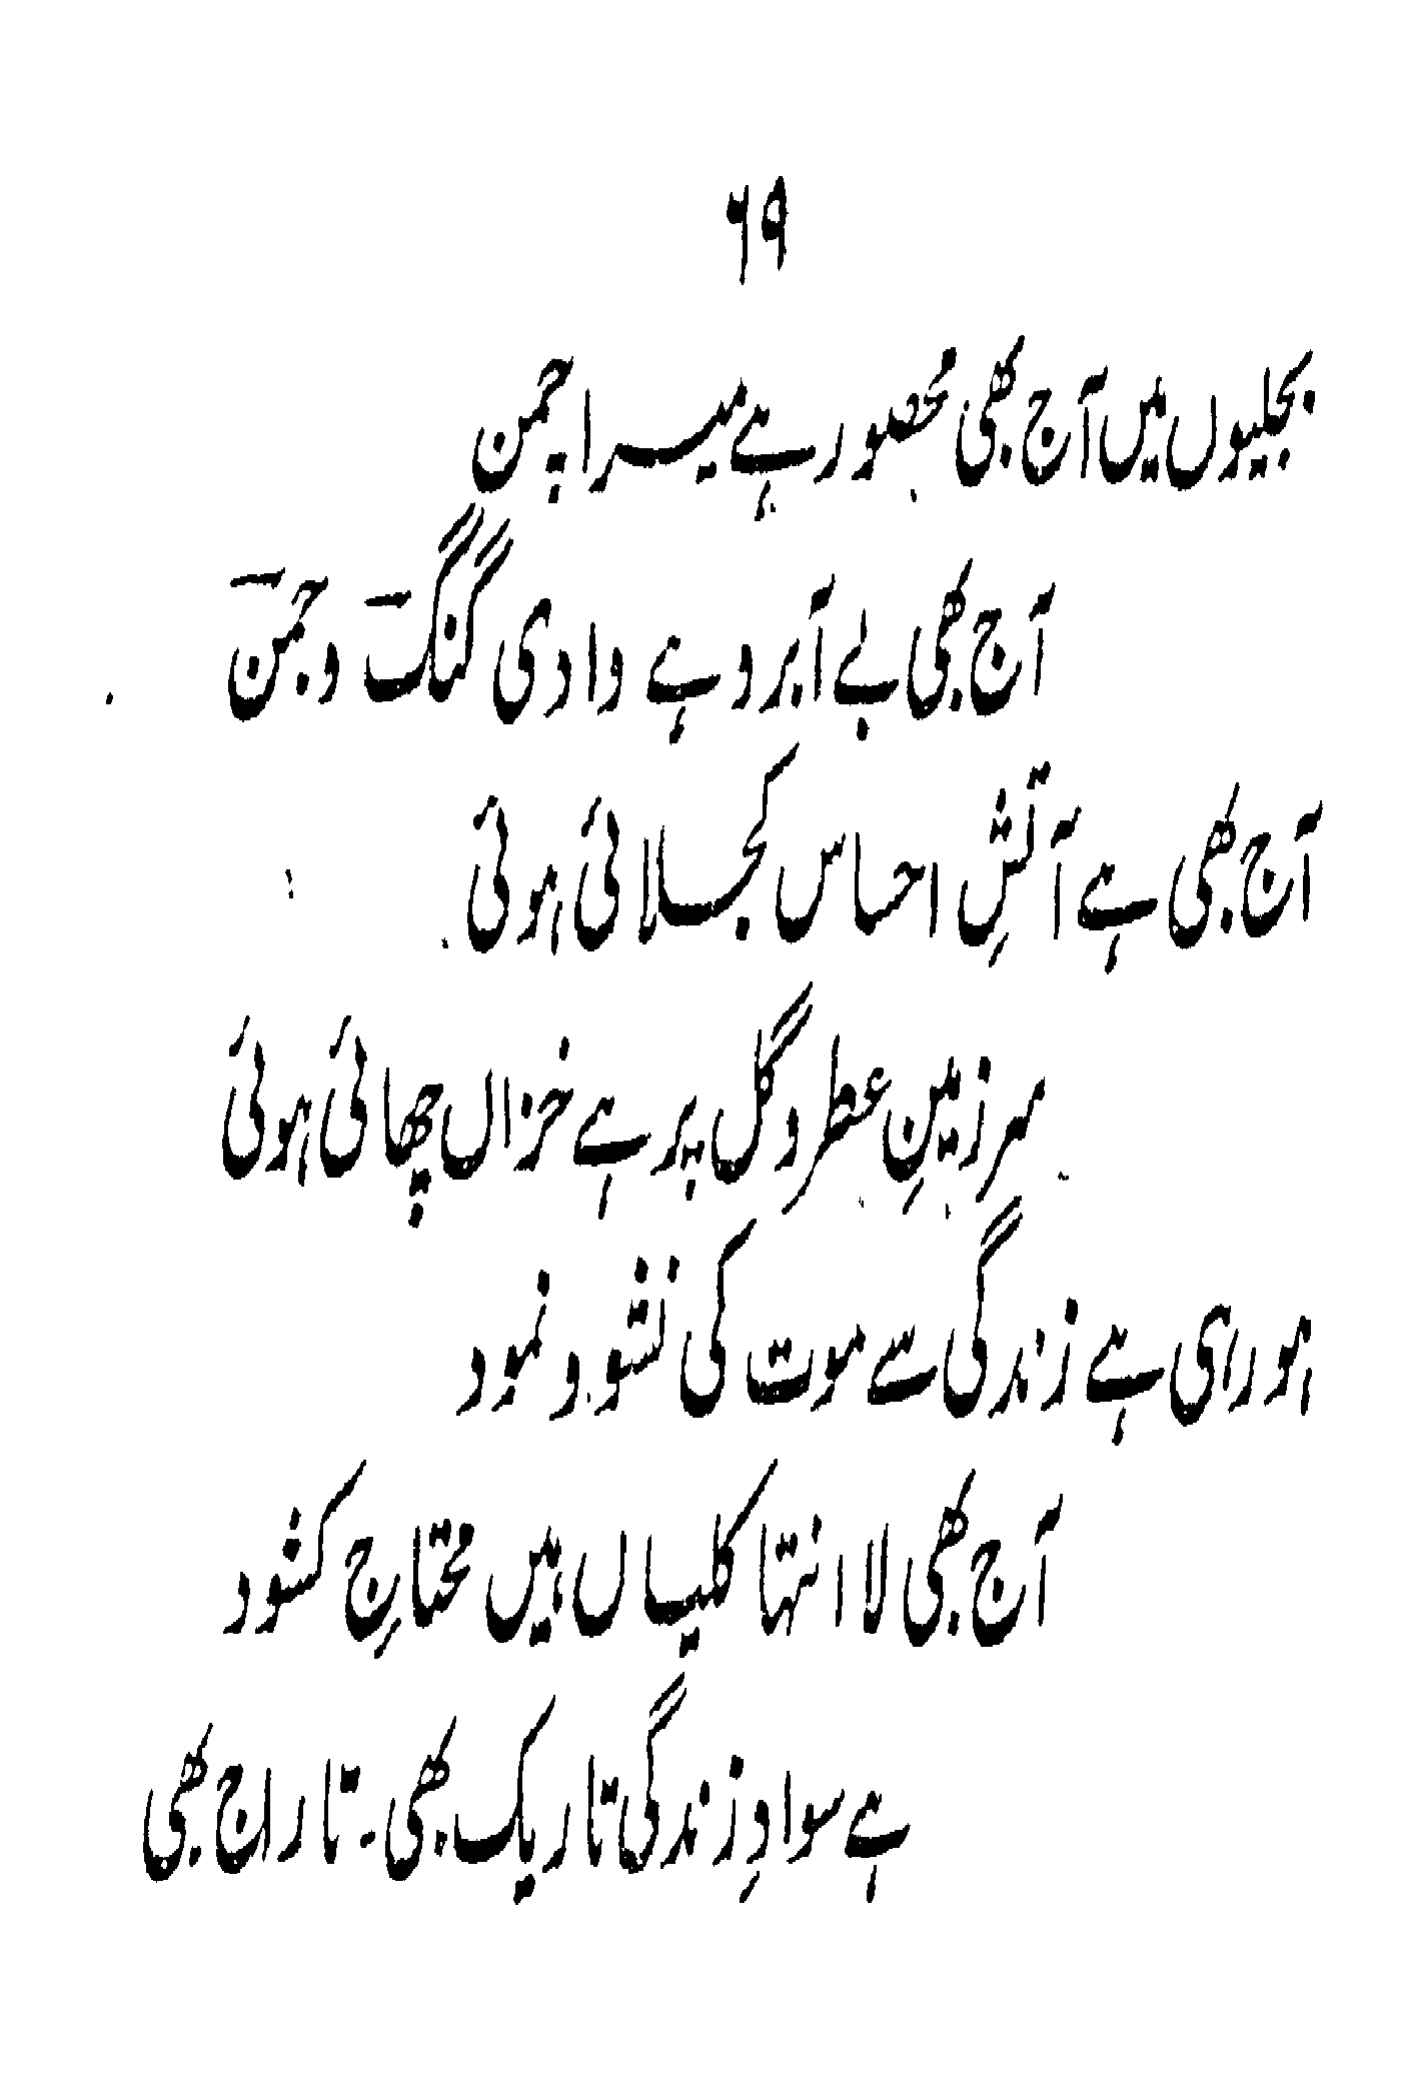 ۶۹
بجلیوں میں آج بھی محصور ہے میرا چمن
آج بھی بے آبرو ہے وادی گنگ و جمن
آج بھی ہے آتشِ احساس کجلائی ہوئی
سرزمینِ عطر و گل پر ہے خزاں چھائی ہوئی
ہو رہی ہے زندگی سے موت کی نشو و نمود
آج بھی لا انتہا کلیاں ہیں محتاجِ کشود
ہے سوادِ زندگی تاریک بھی۔ تاراج بھی